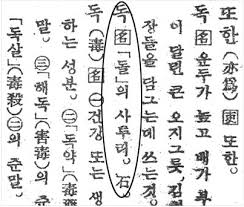 또한(亦爲) 또한
독 名 운두가 높고 배가 부
이 달린 큰 오지그릇, 김
장들을 담그는데 쓰는것.
독 名 「돌의 사투리. 石
독(毒) 名 ㊀건강 또는 생
하는 성분. ㊁「독약」(毒
말. ㊂「해독」(害毒)의 준
「독살」(毒殺)㊁의 준말.